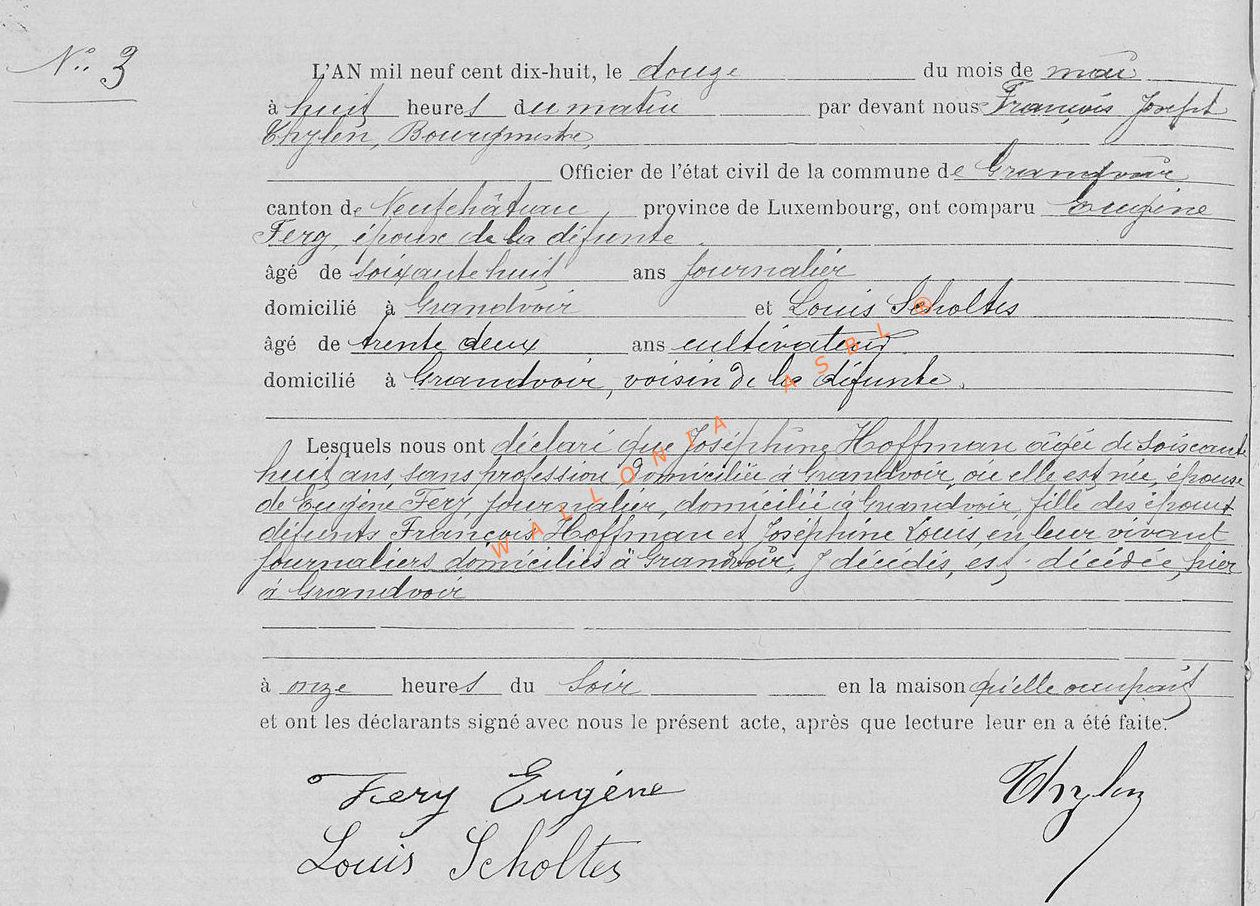 N° 3
L'AN mil neuf cent dix-huit, le douze du mois de mai
à huit heures du matin par devant nous François Joseph
Thylen, Bourgmestre,
Officier de l'état civil de la commune de Grandvoir
canton de Neufchâteau, province de Luxembourg, ont comparu Eugène
Fery, époux de la défunte.
âgé de soixante huit ans journalier
domicilié à Grandvoir et Louis Scholtes
âgé de trente deux ans cultivateur
domicilié à Grandvoir, voisin de la défunte.
Lesquels nous ont déclaré que Joséphine Hoffman âgée de soixante
huit ans, sans profession, domiciliée à Grandvoir, où elle est née, épouse
de Eugène Fery, journalier, domicilié à Grandvoir, fille des époux
défunts François Hoffman et Joséphine Louis, en leur vivant
journaliers domiciliés à Grandvoir, y décédés, est décédée, hier
à Grandvoir
à onze heures du soir en la maison qu'elle occupait
et ont les déclarants signé avec nous le présent acte, après que lecture leur en a été faite.
Fery Eugéne Thylen
Louis Scholtes
WALLONIA ASBL ©